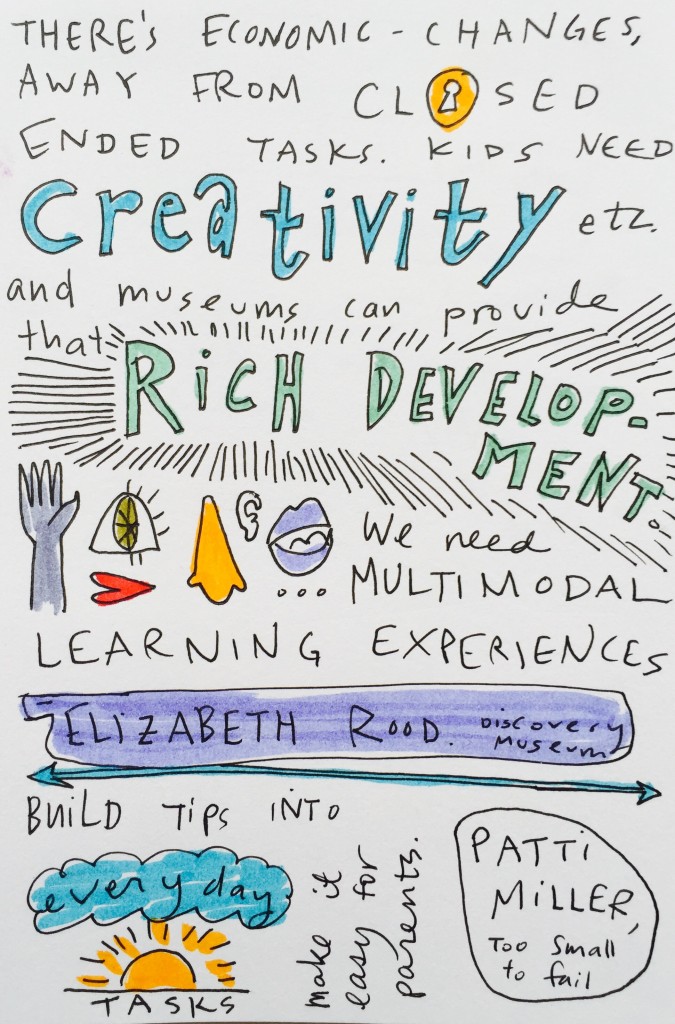 THERE'S ECONOMIC - CHANGES,
AWAY FROM CLOSED
ENDED TASKS. KIDS NEED
Creativity etc.
and museums can provide
that RiCH DEVELOP-
MENT.
We need
MULTIMODAL
LEARNING EXPERIENCES
ELIZABETH ROOD. Discovery
Museum
BUILD TIPS INTO
everyday
TASKS
make it
easy for
parents.
PATTI
MILLER,
Too Small
to fail